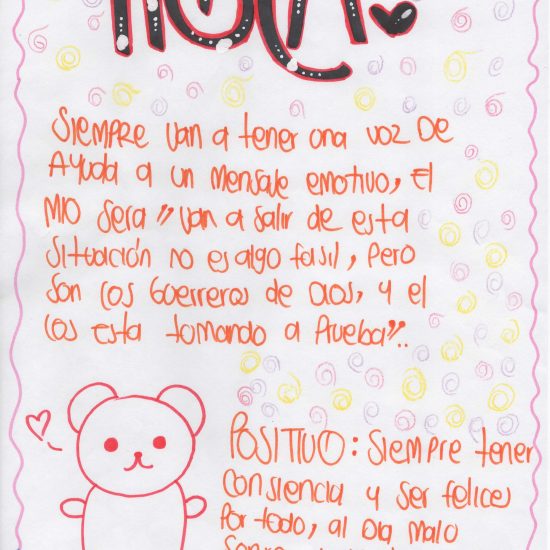 HOLA!
SIEMPRE van a tener una voz DE
AyuDa a un mensaje emotivo, El
MIO Sera "van a salir de esta
situación no es algo fasil, pero
son los Guerreros de Dios, y el
los esta tomando a Prueba"..
POSITIVO: Siempre tener
consiencia y ser felices
por todo, al Dia malo